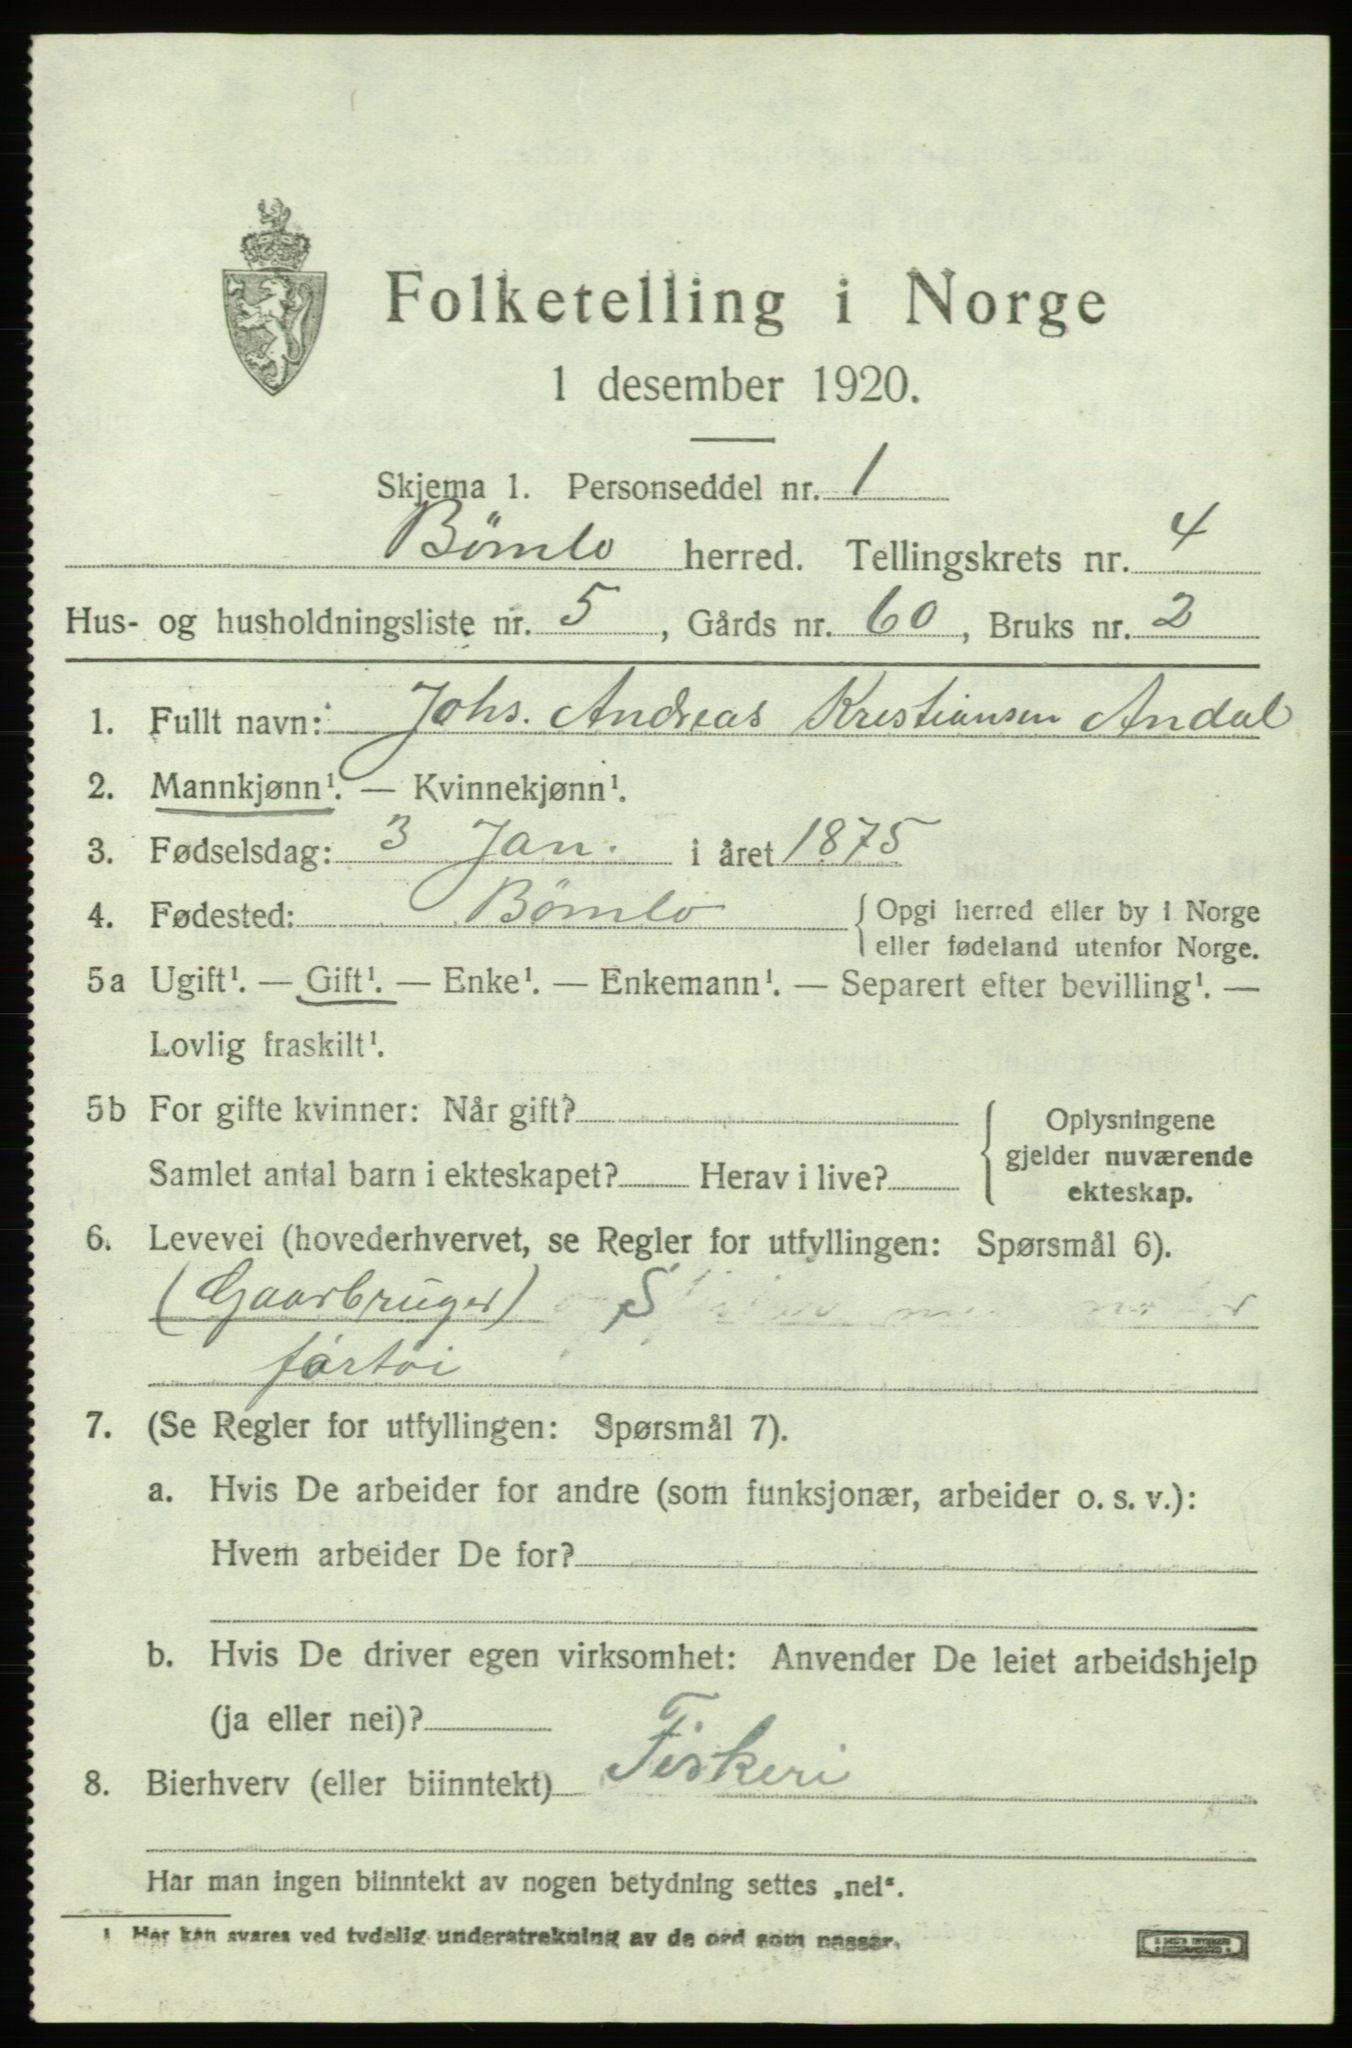 Folketelling i Norge
1 desember 1920.
Skjema 1. Personseddel nr. 1
Bömlo herred. Tellingskrets nr. 4
Hus- og husholdningsliste nr. 5, Gårds nr. 60, Bruks nr. 2
1. Fullt navn: Johs. Andreas Kristiansen Andal
2. Mannkjønn¹. — Kvinnekjønn¹.
3. Fødselsdag: 3 Jan. i året 1875
4. Fødested: Bömlo { Opgi herred eller by i Norge
eller fødeland utenfor Norge.
5a Ugift¹. — Gift¹. — Enke¹. — Enkemann¹. — Separert efter bevilling¹. —
Lovlig fraskilt¹.
5b For gifte kvinner: Når gift? { Oplysningene
gjelder nuværende
ekteskap.
Samlet antal barn i ekteskapet? Herav i live?
6. Levevei (hovederhvervet, se Regler for utfyllingen: Spørsmål 6).
(Gaarbruger)
fartöi
7. (Se Regler for utfyllingen: Spørsmål 7).
a. Hvis De arbeider for andre (som funksjonær, arbeider o. s. v.):
Hvem arbeider De for?
b. Hvis De driver egen virksomhet: Anvender De leiet arbeidshjelp
(ja eller nei)?
8. Bierhverv (eller biinntekt) Fiskeri
Har man ingen biinntekt av nogen betydning settes „nei“.
1 Her kan svares ved tydelig understrekning av de ord som passer.